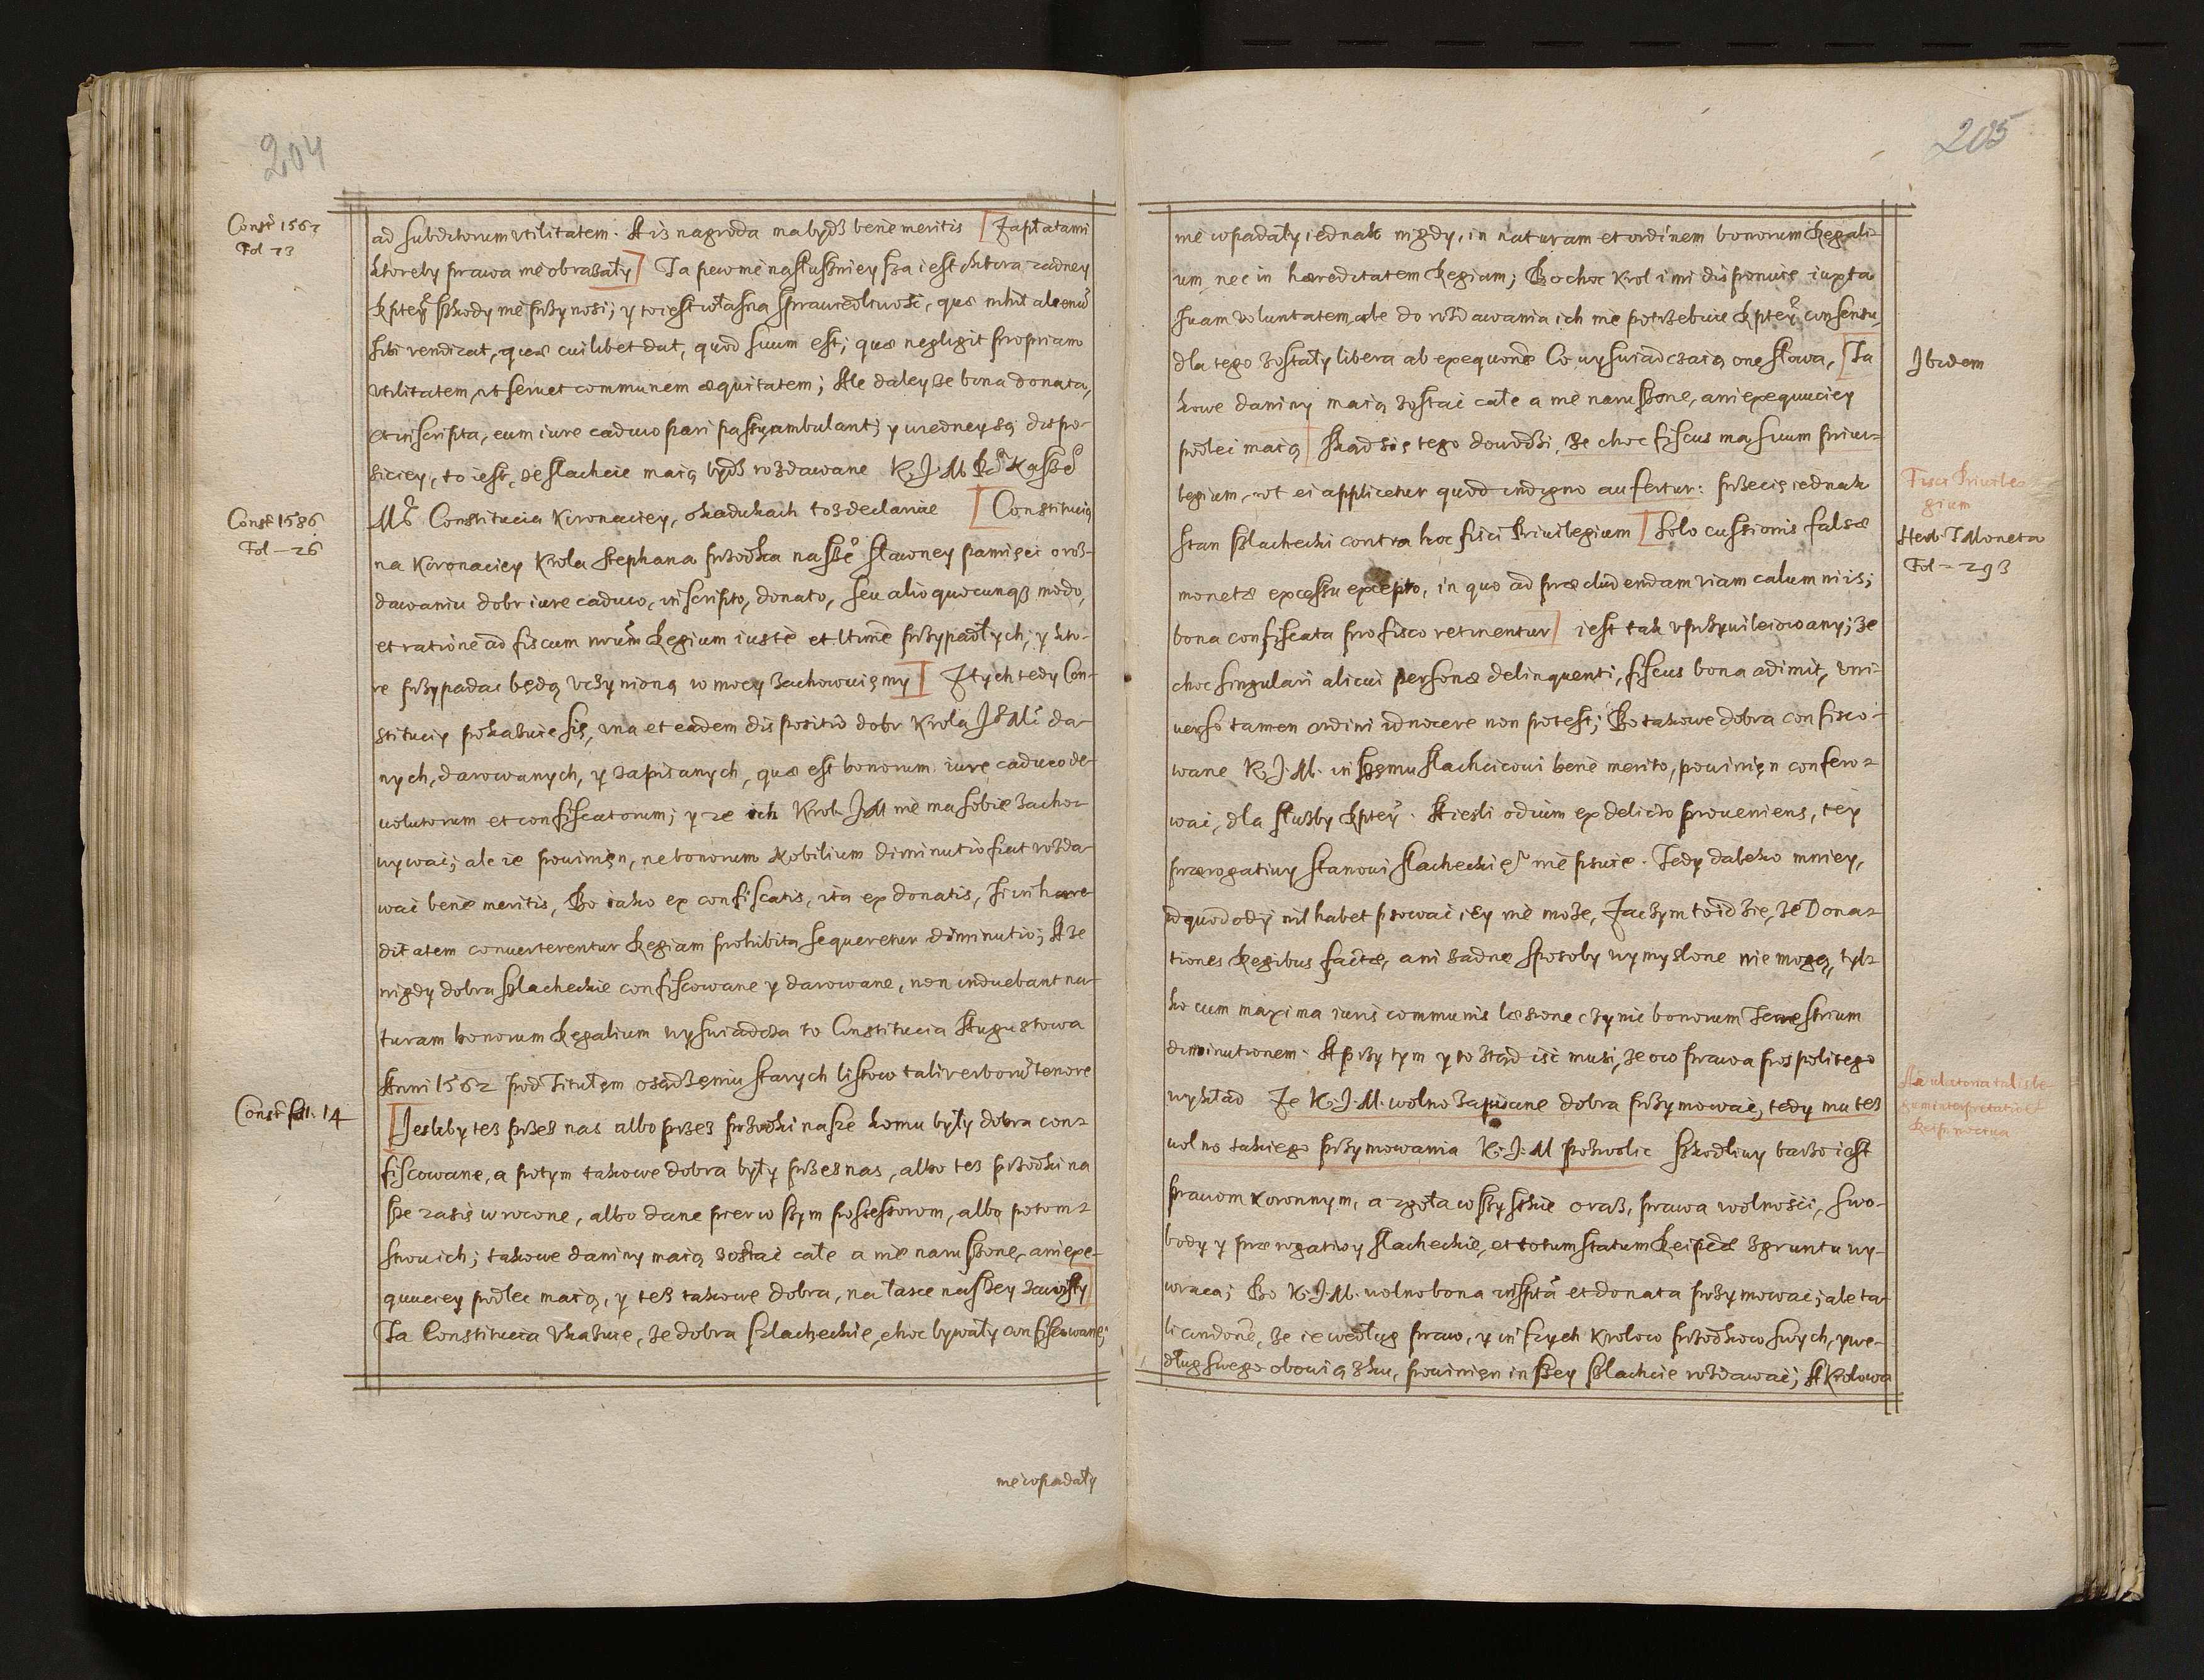 204
Const 1562
Fol 73
ad subditorum vtilitatem. A iz nagroda ma bydz bene meritis [Zapłatami
ktoreby prawa nie obrazały] Ta pewnie nasłusznieysza iest ktora zadney
Rptey szkody nie przynosi; y to iest własna sprawiedliwość, quæ nihil alienũ
sibi vendicat, quæ cuilibet dat, quod suum est; quæ negligit propriam
vtilitatem, vt seruet communem æquitatem; Ale daley ze bona donata,
et inscripta, cum iure caduco pari passu, ambulant; y w iedney są dispo-
siciey, to iest, ze szlachcie maią bydz rozdawane K. J. M.
Const 1586
Fol – 26
Constitucia Koronaciey, o kadukach to zdeclaruie [Constitucią
na Koronaciey Krola Stephana przodka nasze° sławney pamięci o roz-
dawaniu dobr iure caduco, inscripto, donato, seu alio quocunqz modo,
et ratione ad fiscum nrum Regium iustè et ltimè przypadłych; y kto-
re przypadac będą vczynioną w mocy zachowuięmy] Z tych tedy Con-
stituciy pokazuie się, vna et eadem dispositio dobr Krola J° M̃ da-
nych, darowanych, y zapisanych, quæ est bonorum iure caduco de-
uolutorum et confiscatorum; y ze ich Krol JM nie ma sobie zacho-
wywać; ale ie powinięn, ne bonorum Nobilium diminutio fiat rozda-
wać benè meritis, Bo iako ex confiscatis, ita ex donatis, si in hære-
ditatem conuerterentur Regiam prohibita sequeretur diminutio; A ze
nigdy dobra szlacheckie confiscowane y darowane, non induebant na-
turam bonorum Regalium wyswiadcza to Constitucia Augustowa
Anni 1562 pod Titułem o sądzęniu starych listow tali verborũ tenore
Const fol. 14
[Jesliby tez przez nas albo przez przodki nasze komu były dobra con-
fiscowane, a potym takowe dobra były przez nas, albo tez przodki na
sze zasię wrocone, albo dane pierwszym possessorom, albo potom-
kow ich; takowe daniny maią zostać całe a nie naruszone, ani exe-
quuciey podlec maią, y tez takowe dobra, na łasce naszey zawisły]
Ta Constitucia vkazuie, ze dobra szlacheckie, choc bywały confiscowane,
nie wpadały
205
nie wpadały iednak nigdy, in naturam et ordinem bonorum Regali-
um, nec in hæreditatem Regiam; Bo choc Krol imi disponuie iuxta
suam voluntatem, ale do rozdawania ich nie potrzebuie Rptey consensu,
dla tego zostały libera ab exequone Co wyswiadczaią one słowa, [Ta
Jbidem
kowe daniny maią zostać całe a nie naruszone, ani exequuciey
podlec maią] Skąd się tego dowodzi, ze choc fiscus ma suum priui-
legium, vt ei applicetur quod indigno aufertur: przecię iednak
Fisci Priuile-
gium
stan szlachecki contra hoc fisci Priuilegium [solo cussionis falsæ
Herb. T Moneta
Fol – 293
monetæ excessu excepto, in quo ad præcludendam viam calumniis;
bona confiscata pro fisco retinentur] iest tak vprzywileiowany; ze
choc singulari alicui personæ delinquenti, fiscus bona adimit, vni-
uerso tamen ordini id nocere non potest; Bo takowe dobra confisco-
wane K. J. M. inszęmu szlachcicowi benè merito, powinięn confero-
wać, dla służby Rptey. A iesli odium ex delicto proueniens, tey
prærogatiwy stanowi szlacheckie° nie psuie. Tedy daleko mniey,
id quod odij nil habet psować iey nie może, Zaczym to idzie, ze Dona-
tiones Regibus factæ, ani zadne sposoby wymyslone nie mogą, tyl-
ko cum maxima iuris communis læsione czynic bonorum Terrestrium
diminutionem. A przy tym y to ztąd isc musi, ze ow prawa pospolitego
wykład Ze K. J. M. wolno zapisane dobra przymować, tedy mu tez
Adulatoria talis le-
gum interpretatio est
Reip. nociua
wolno takiego przymowania K. J. M pozwolic szkodliwy bardzo iest
prawom koronnym, a zgoła wszystkie oraz, prawa wolności, swo-
body y prærogatiwy szlacheckie, et totum statum Reipcæ z gruntu wy-
wraca; Bo K. J. M. wolno bona inspta et donata przymować; ale ta-
li condone, ze ie według praw, y inszych Krolow przodkow swych, y we-
dług swego obowiązku, powinięn inszey szlachcie rozdawać; A Krolowa